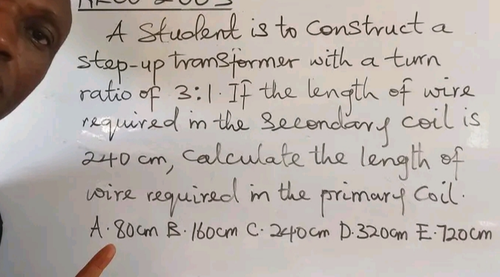 A student is to construct a
step-up transformer with a turn
ratio of 3:1. If the length of wire
required in the secondary coil is
240 cm, calculate the length of
wire required in the primary coil.
A. 80cm B. 160cm C. 240cm D. 320cm E. 720cm